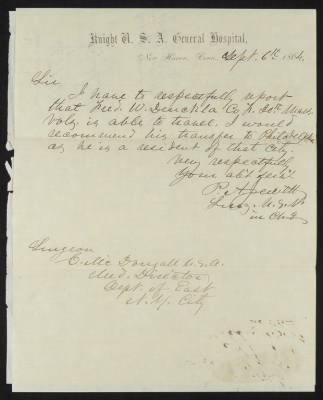 Knight U. S. A. General Hospital,
New Haven, Conn. Sept. 6th 1864.
Sir
I have to respectfully report
that Fred. W. Co. K. 20th Mass
Vols. is able to travel. I would
recommend his transfer to Philadelphia
as he is a resident of that City.
Very respectfully
Your obt. servt.
P. A. Jewett
Surg. U.S.V.
in Ch.
Surgeon
C. Mc Dougall U.S.A.
Med. Director
Dept. of East
N. Y. City